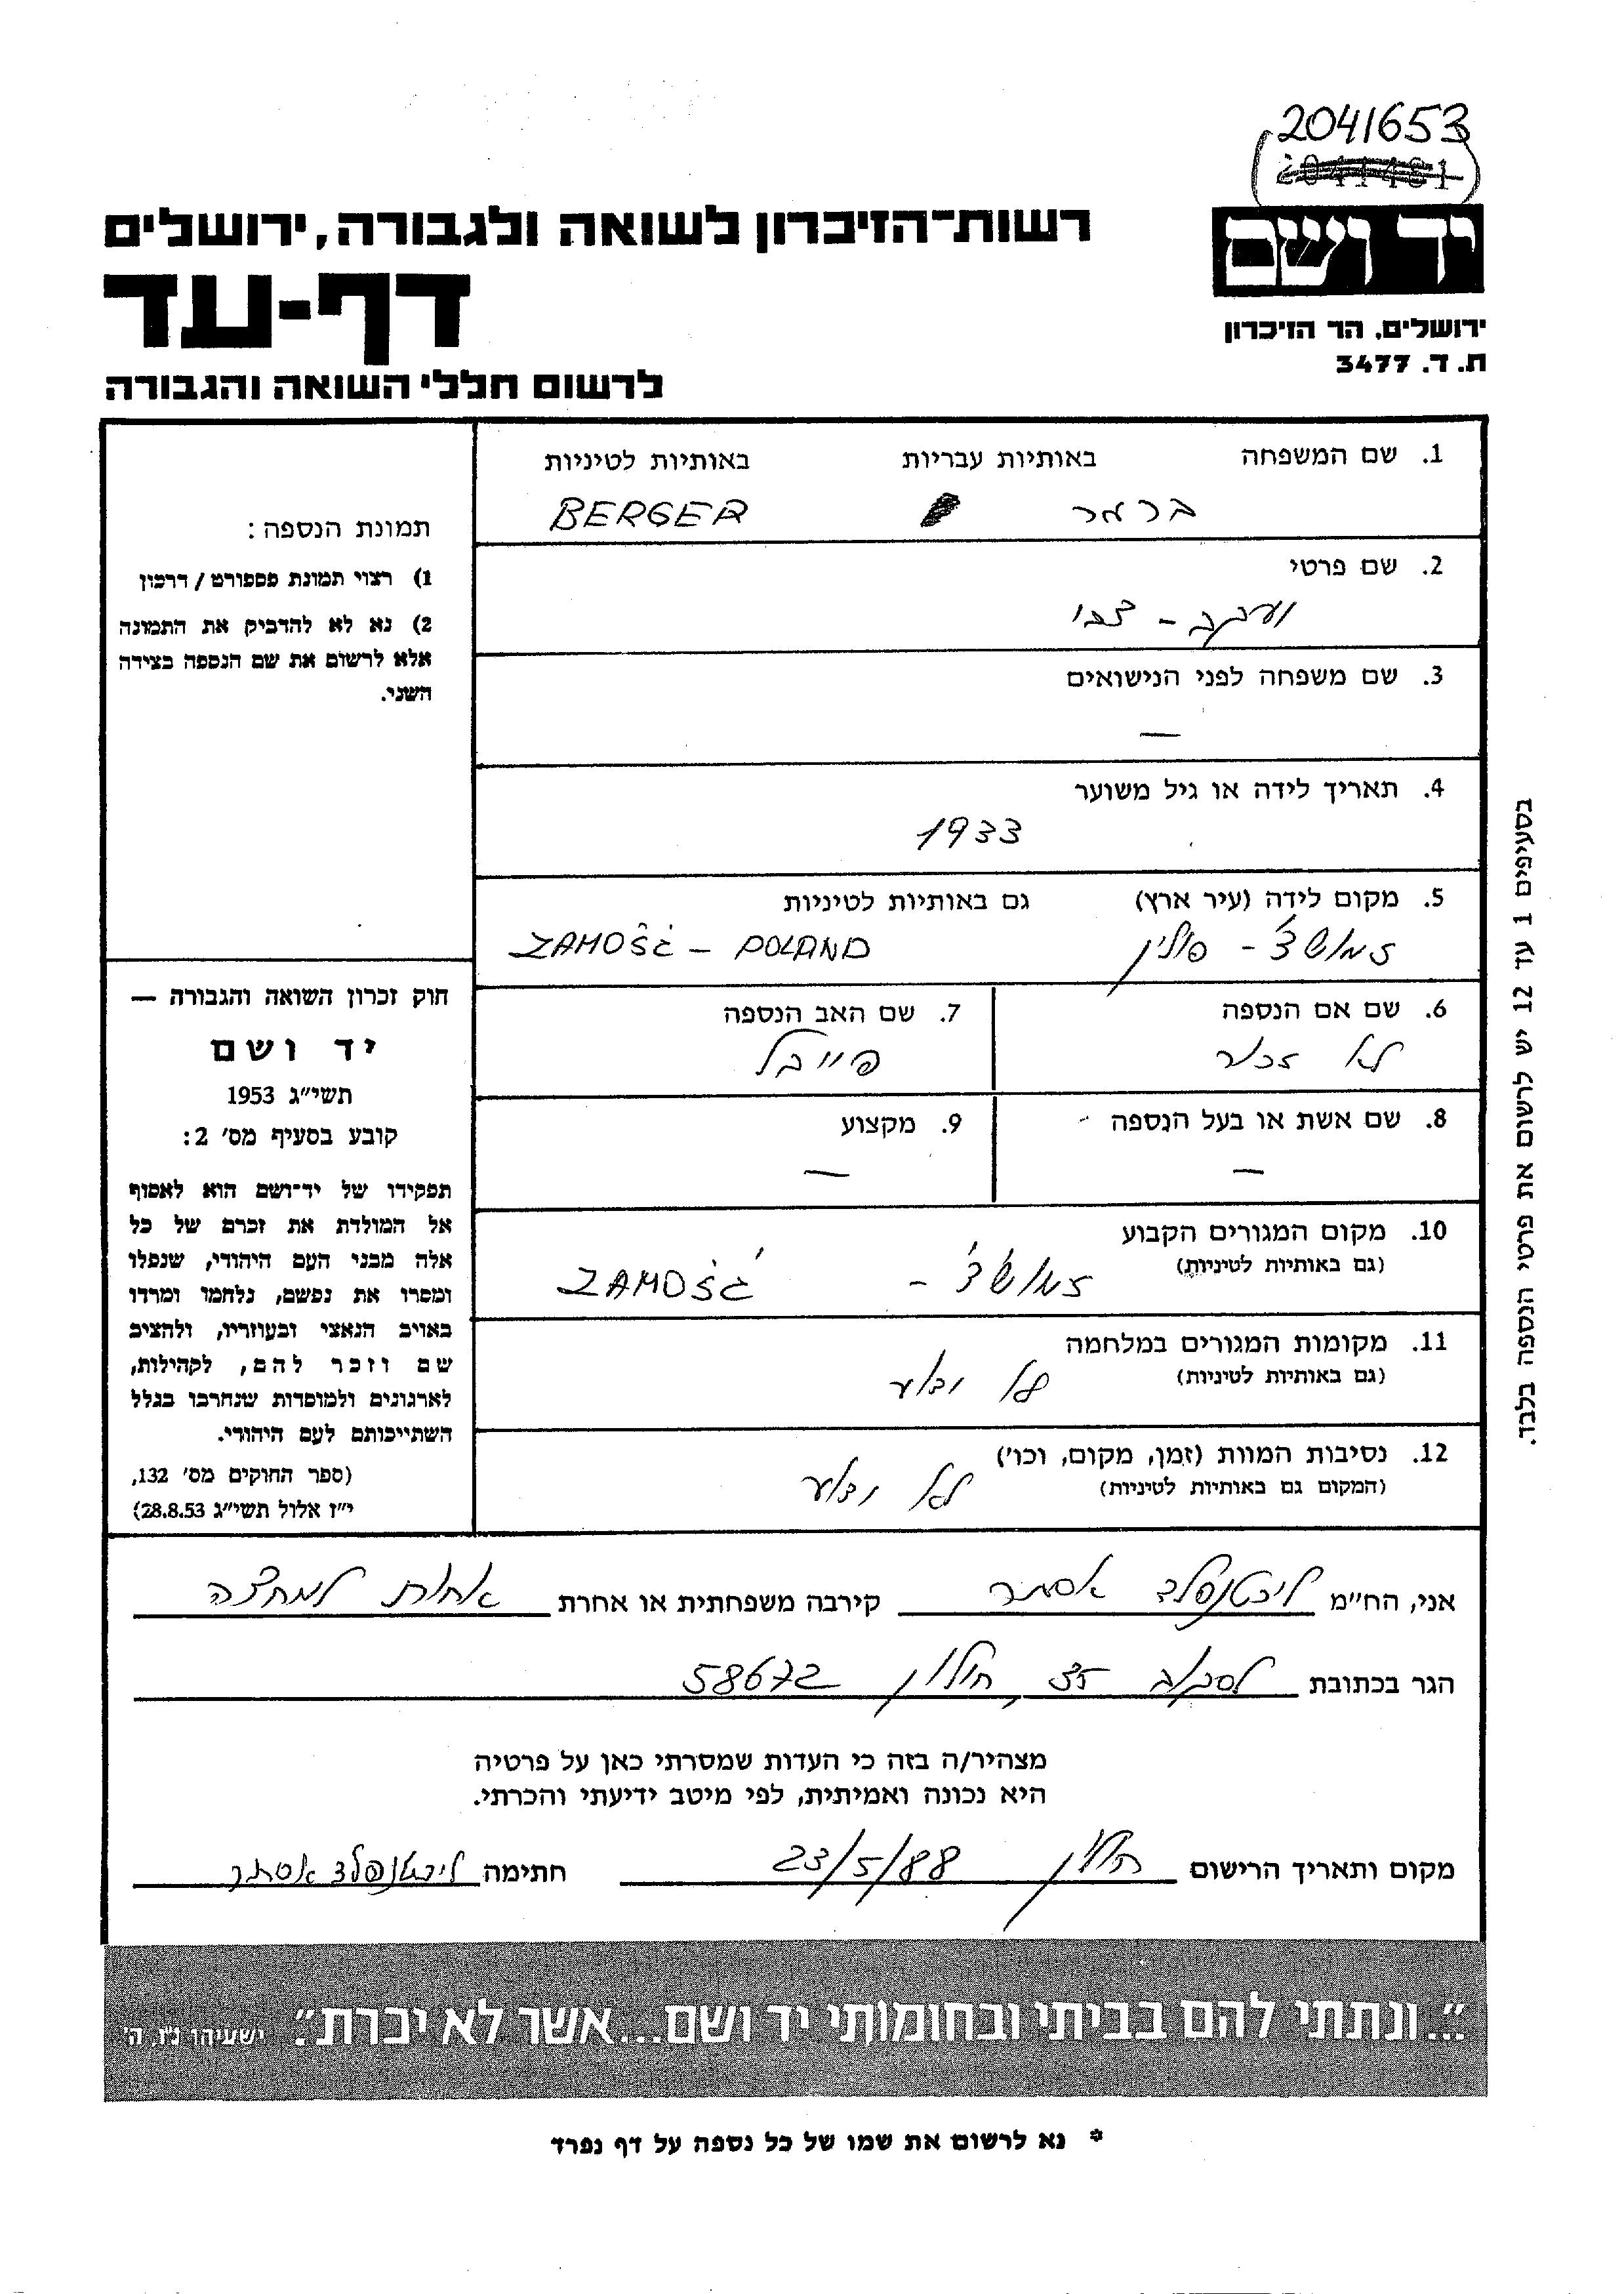 2041653
יד ושם
ירושלים, הר הזיכרון
ת. ד. 3477
רשות־הזיכרון לשואה ולגבורה, ירושלים
דף-עד
לרשום חללי השואה והגבורה
1. שם המשפחה באותיות עבריות באותיות לטיניות
ברגר BERGER
2. שם פרטי
יעקב - צבי
3. שם משפחה לפני הנישואים
—
4. תאריך לידה או גיל משוער
1933
5. מקום לידה (עיר ארץ) גם באותיות לטיניות
זמושץ' - פולין ZAMOŚĆ - POLAND
6. שם אם הנספה 7. שם האב הנספה
לא זכור פייבל
8. שם אשת או בעל הנספה 9. מקצוע
— —
10. מקום המגורים הקבוע
(גם באותיות לטיניות)
זמושץ' - ZAMOŚĆ
11. מקומות המגורים במלחמה
(גם באותיות לטיניות)
לא ידוע
12. נסיבות המוות (זמן, מקום, וכו')
(המקום גם באותיות לטיניות)
לא ידוע
תמונת הנספה:
1) רצוי תמונת פספורט / דרכון
2) נא לא להדביק את התמונה
אלא לרשום את שם הנספה בצידה
השני.
חוק זכרון השואה והגבורה —
יד ושם
תשי"ג 1953
קובע בסעיף מס' 2:
תפקידו של יד־ושם הוא לאסוף
אל המולדת את זכרם של כל
אלה מבני העם היהודי, שנפלו
ומסרו את נפשם, נלחמו ומרדו
באויב הנאצי ובעוזריו, ולהציב
שם וזכר להם, לקהילות,
לארגונים ולמוסדות שנחרבו בגלל
השתייכותם לעם היהודי.
(ספר החוקים מס' 132,
י"ז אלול תשי"ג 28.8.53)
בסעיפים 1 עד 12 יש לרשום את פרטי הנספה בלבד.
אני, הח"מ ליכטנפלד אסתר קירבה משפחתית או אחרת אחות למחצה
הגר בכתובת 35, חולון 58672
מצהיר/ה בזה כי העדות שמסרתי כאן על פרטיה
היא נכונה ואמיתית, לפי מיטב ידיעתי והכרתי.
מקום ותאריך הרישום חולון 23/5/88 חתימה ליכטנפלד אסתר
"...ונתתי להם בביתי ובחומותי יד ושם...אשר לא יכרת". ישעיהו נ"ו, ה'
* נא לרשום את שמו של כל נספה על דף נפרד